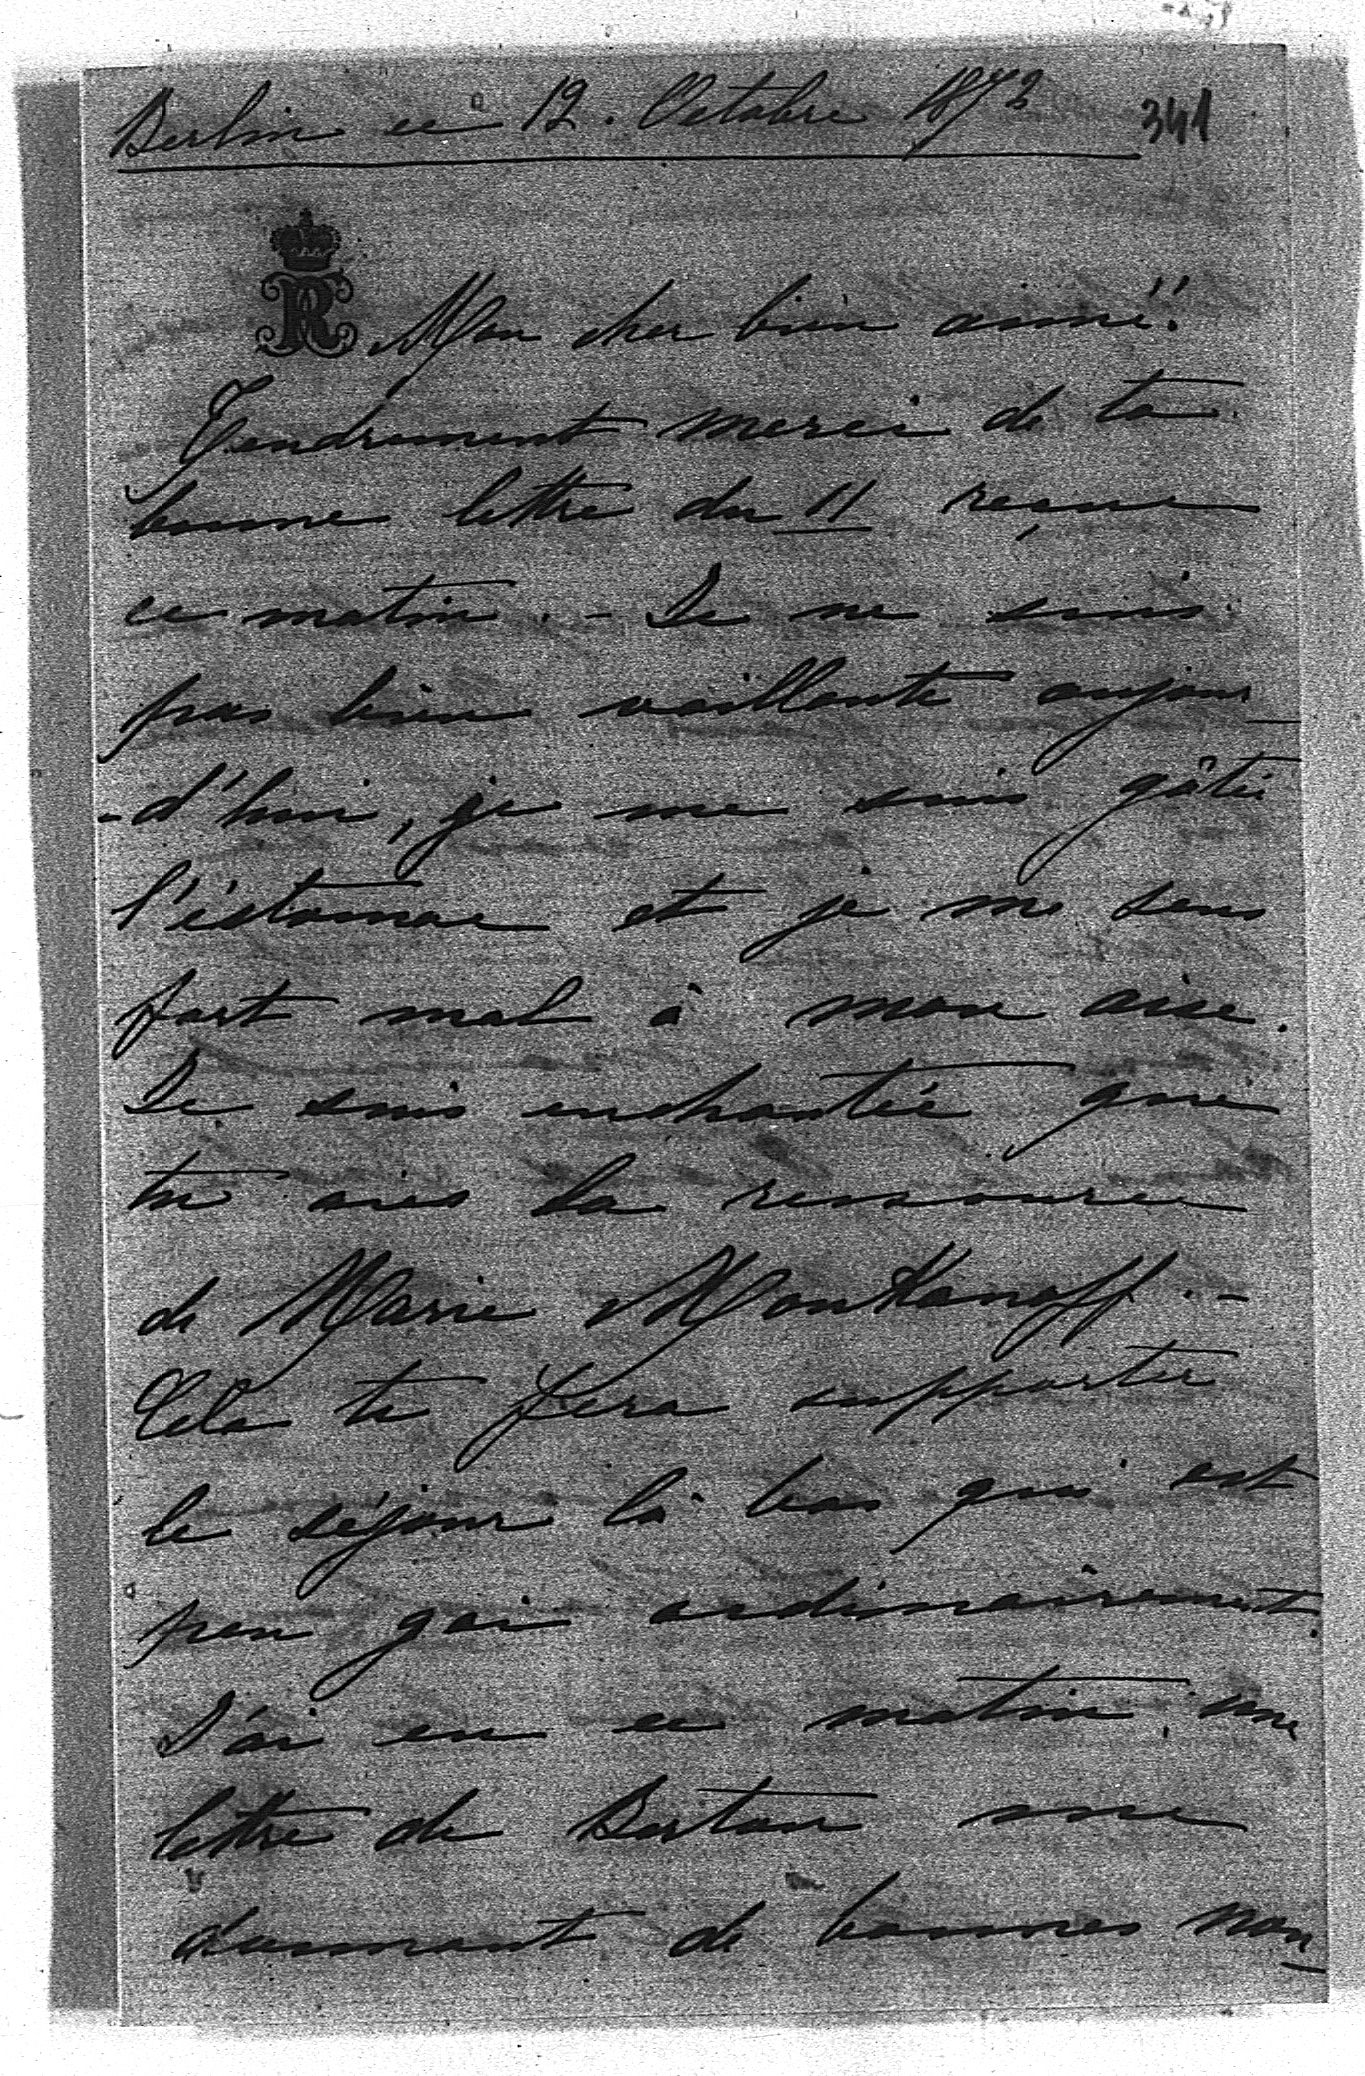 Berlin ce 12. Octobre 1872
341
R
Mon cher bien aimé!
Tendrement merci de ta
bonne lettre du 11 reçue
ce matin. - Je ne suis
pas bien vaillante aujour
-d'hui, je me suis gâtée
l'éstomac et je me sens
fort mal à mon aise.
Je suis enchantée que
tu aies la ressource
de Marie Moukanoff. -
Cela te fera supporter
le séjour là bas qui est
peu gai ordinairement.
J'ai eu ce matin une
lettre de me
donnant de bonnes nou-